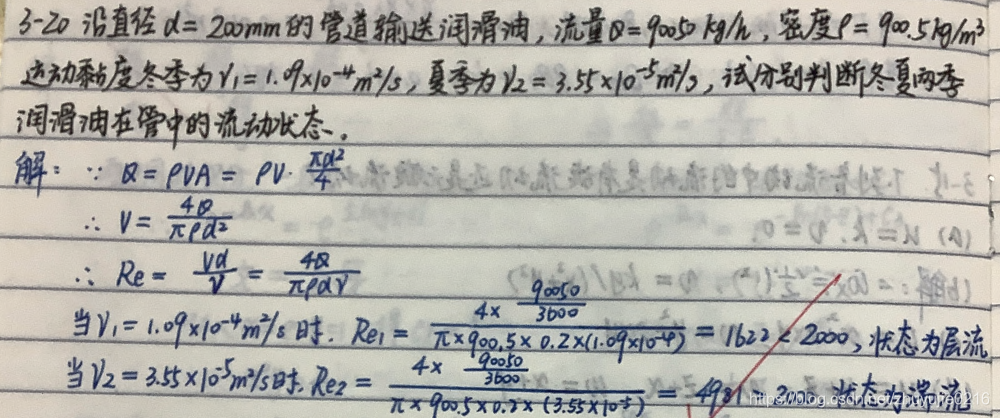 3-20 沿直径 d = 200mm 的管道输送润滑油，流量Q = 90050 kg/h，密度ρ = 900.5kg/m³
运动黏度冬季为 ν₁ = 1.09×10⁻⁴ m²/s，夏季为 ν₂ = 3.55×10⁻⁵ m²/s，试分别判断冬夏两季
润滑油在管中的流动状态。
解：∵ Q = ρVA = ρV · πd²/4
∴ V = 4Q/πρd²
∴ Re = Vd/ν = 4Q/πρdν
当 ν₁ = 1.09×10⁻⁴ m²/s 时. Re₁ = 4 × 90050/3600 / π × 900.5 × 0.2 × (1.09×10⁻⁴) = 1622 < 2000，状态为层流
当 ν₂ = 3.55×10⁻⁵ m²/s 时. Re₂ = 4 × 90050/3600 / π × 900.5 × 0.2 × (3.55×10⁻⁵) = 4981 状态为